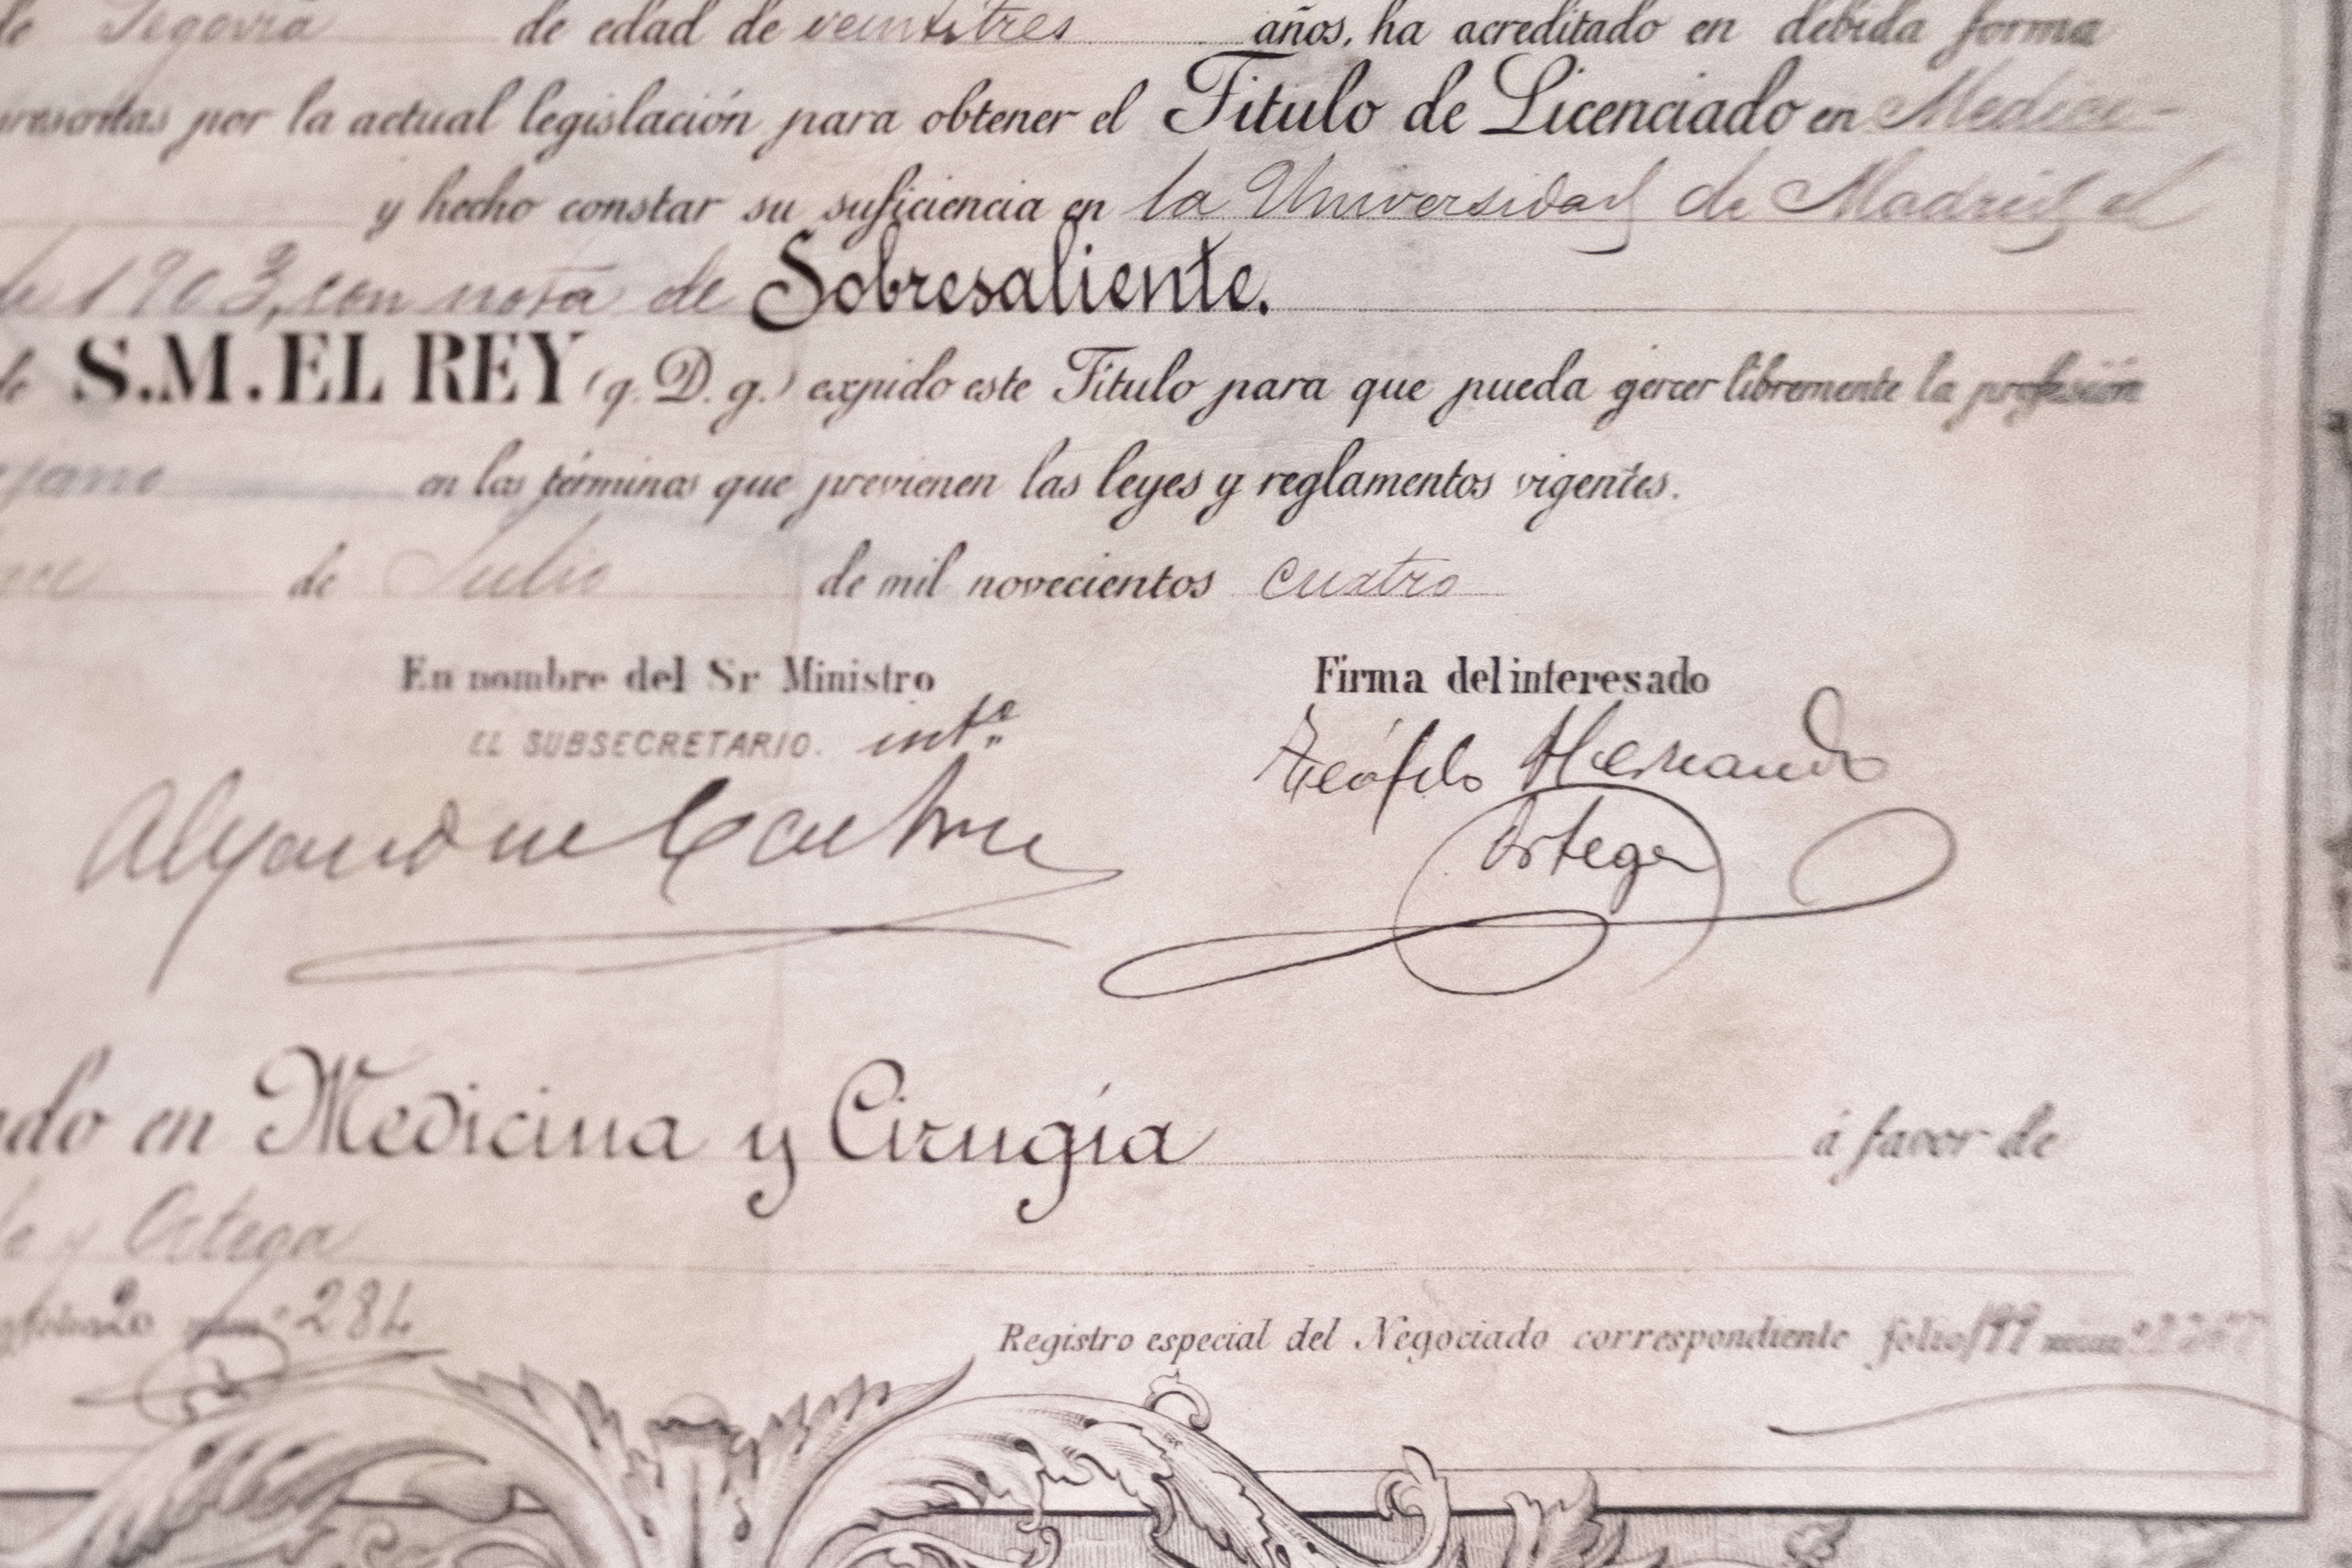 de Segovia de edad de veintitres años, ha acreditado en debida forma
por la actual legislación para obtener el Titulo de Licenciado en Medici-
y hecho constar su suficiencia en la Universidad de Madrid el
de 1903, con nota de Sobresaliente.
de S.M. EL REY (q. D. g.) expido este Titulo para que pueda gercer libremente la profesión
en los términos que previenen las leyes y reglamentos vigentes.
de Julio de mil novecientos cuatro
En nombre del Sr Ministro Firma del interesado
EL SUBSECRETARIO. intº Teófilo Hernando
Ortega
en Medicina y Cirugía á favor de
y Ortega
284
Registro especial del Negociado correspondiente folio 199